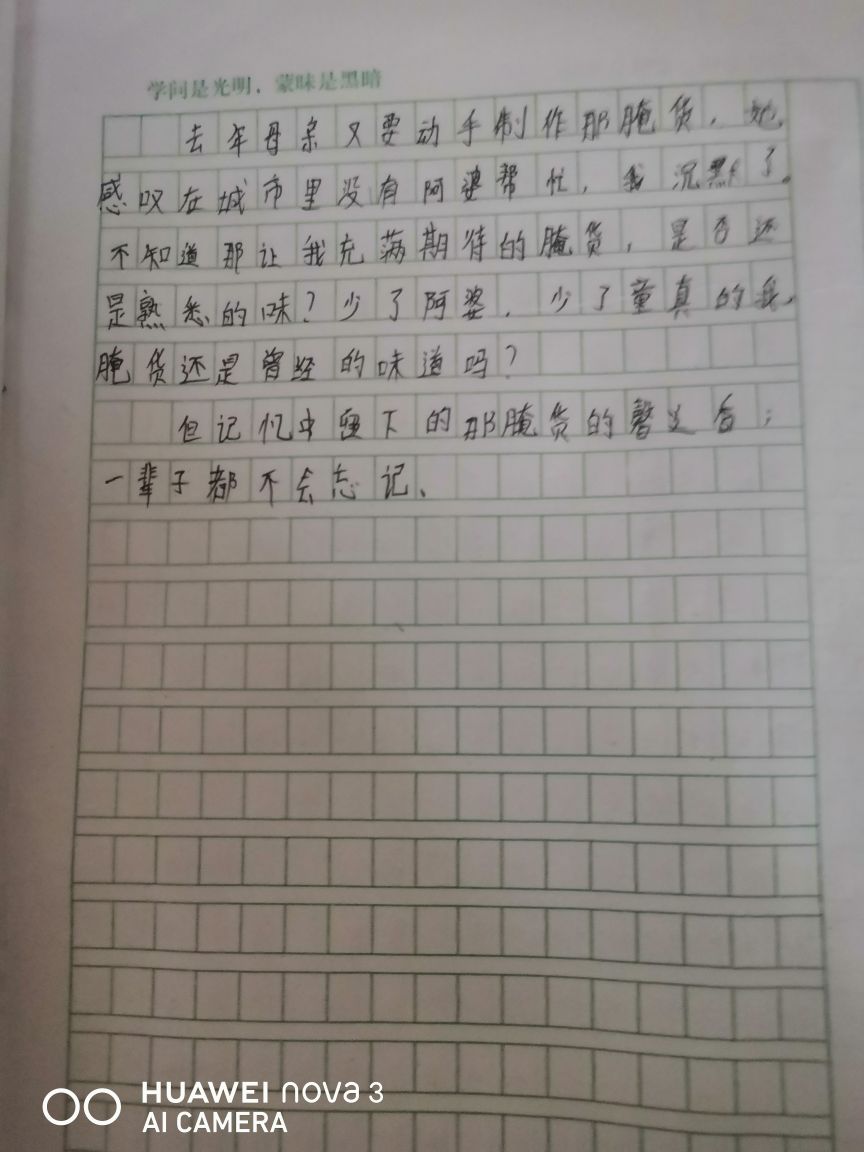 学问是光明，蒙昧是黑暗
去年母亲又要动手制作那腌货，她
感叹在城市里没有阿婆帮忙，我沉默了。
不知道那让我充满期待的腌货，是否还
是熟悉的味？少了阿婆，少了童真的我，
腌货还是曾经的味道吗？
但记忆中留下的那腌货的馨之香；
一辈子都不会忘记、
HUAWEI nova 3
AI CAMERA